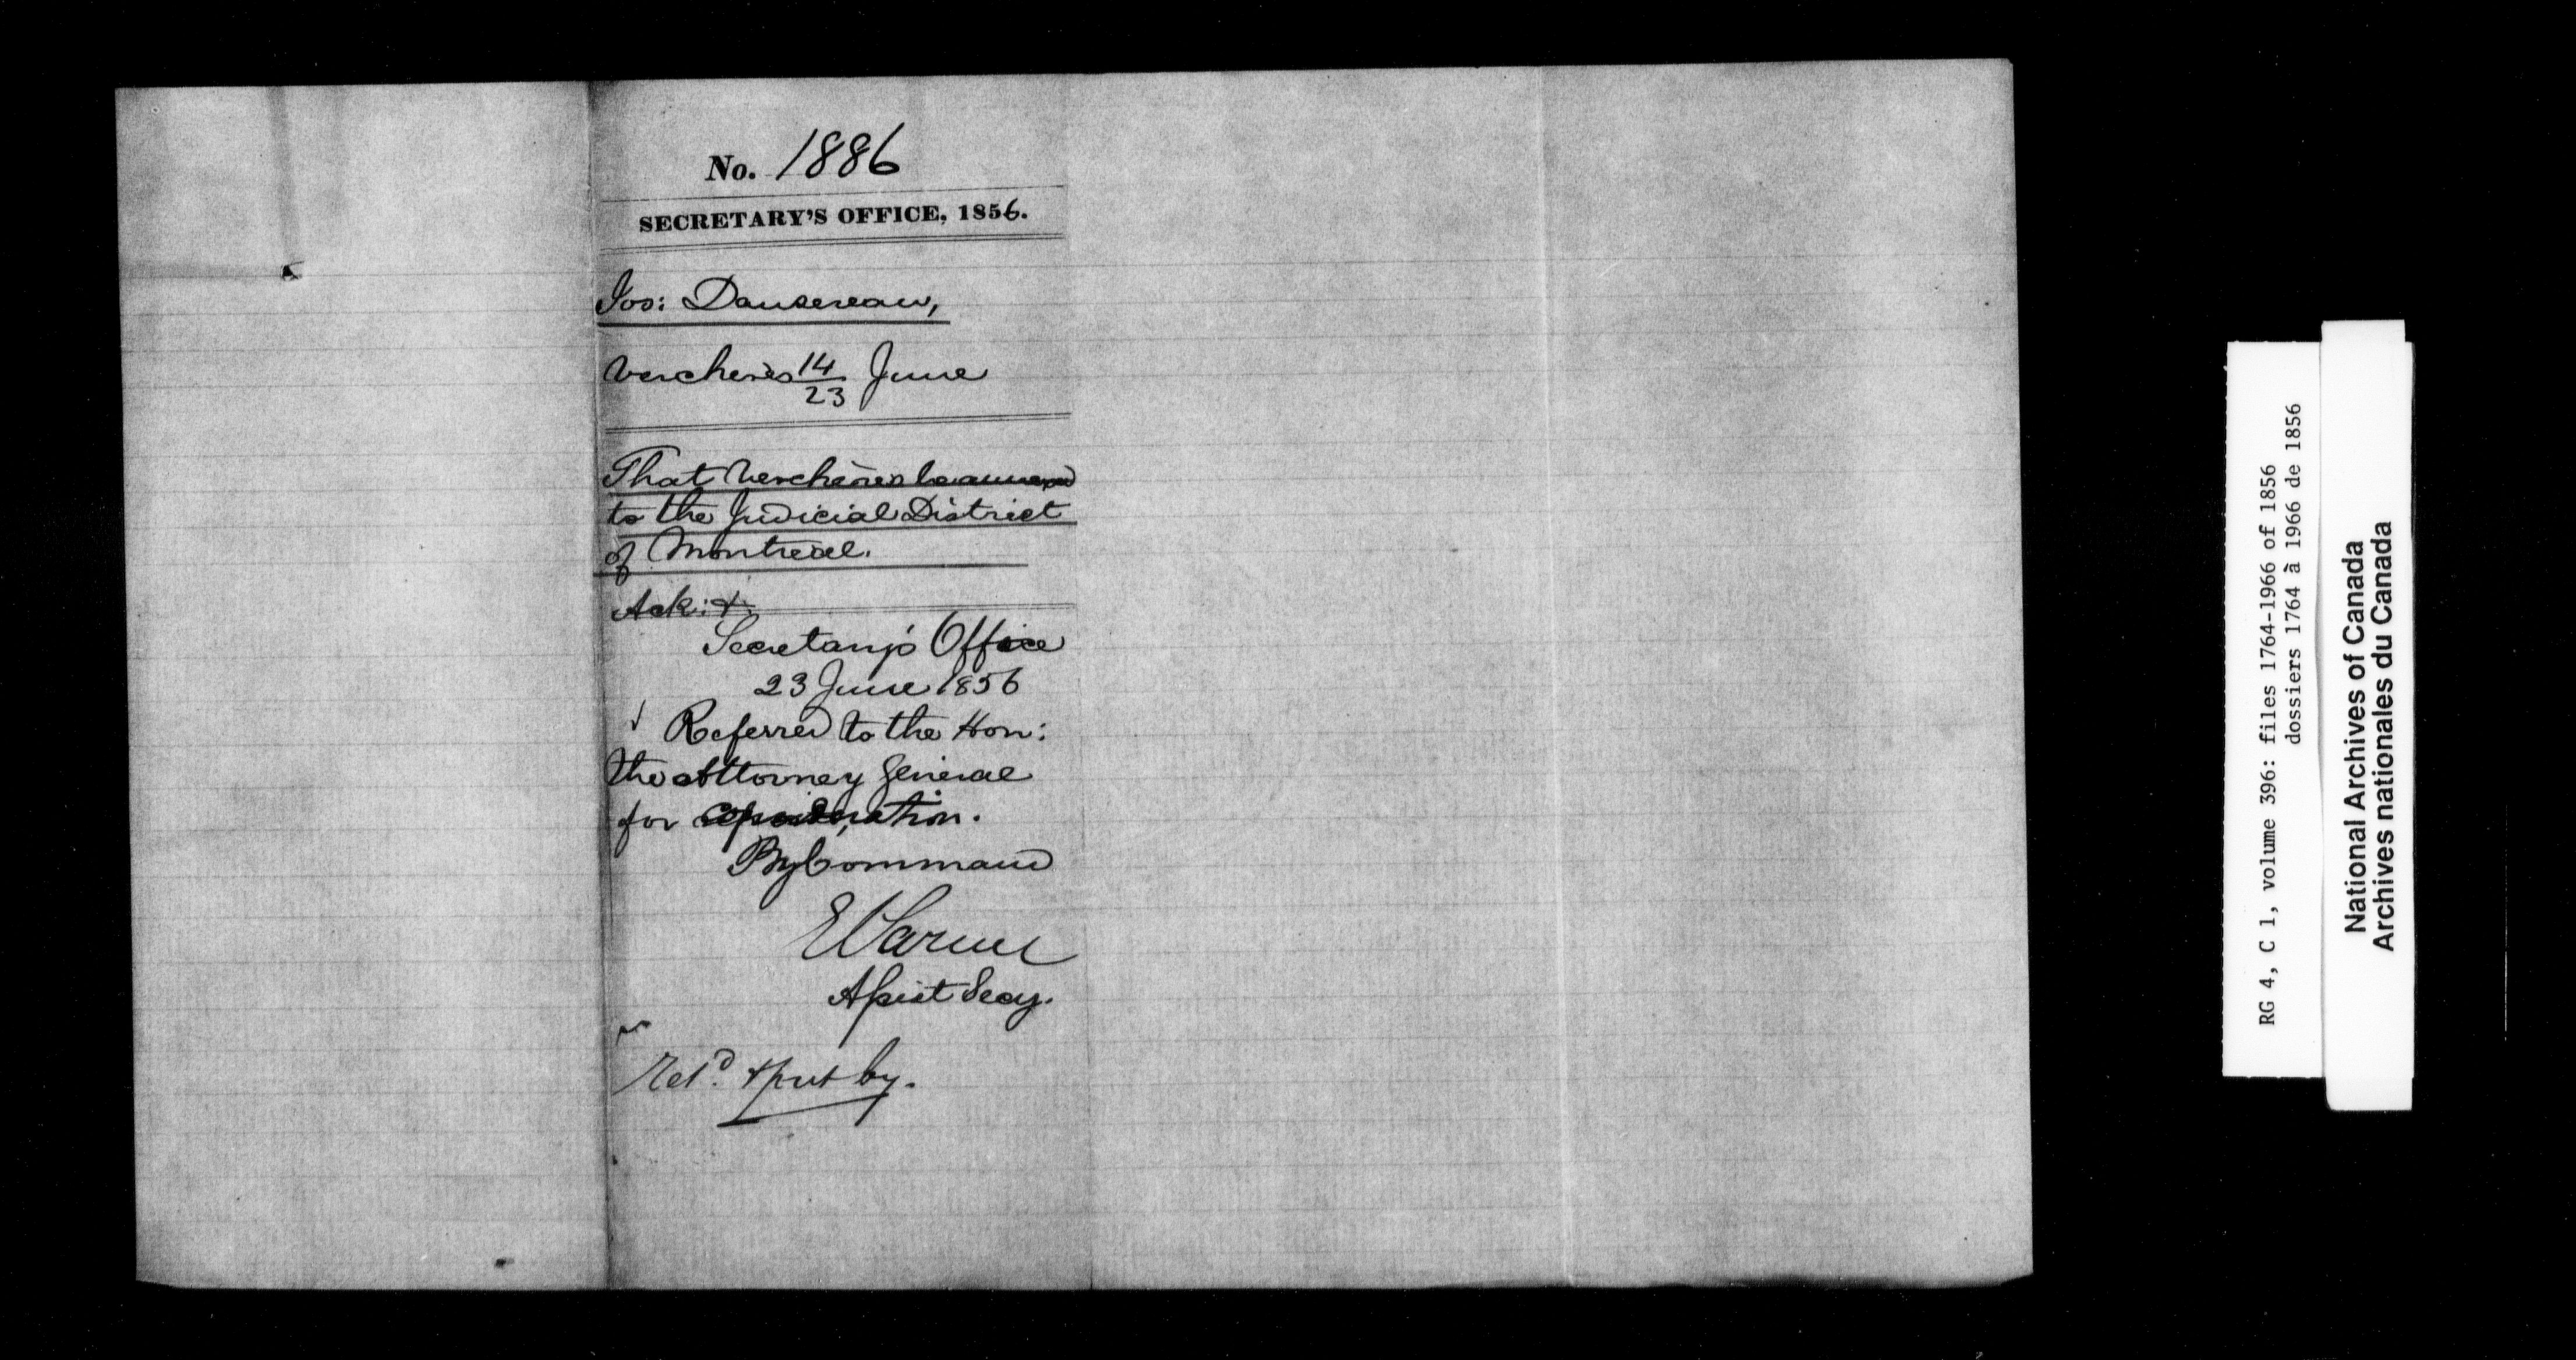 No. 1886
SECRETARY'S OFFICE, 1856.
Jos: Dansereau,
Verchères 14/23 June
That Verchères be annexed
to the Judicial District
of Montreal.
Ack: &
Secretary's Office
23 June 1856
Referred to the Hon:
the Attorney General
for consideration.
By Command
E Parent
Assist Secy.
Retd. & put by.
RG 4, C 1, volume 396: files 1764-1966 of 1856
dossiers 1764 à 1966 de 1856
National Archives of Canada
Archives nationales du Canada